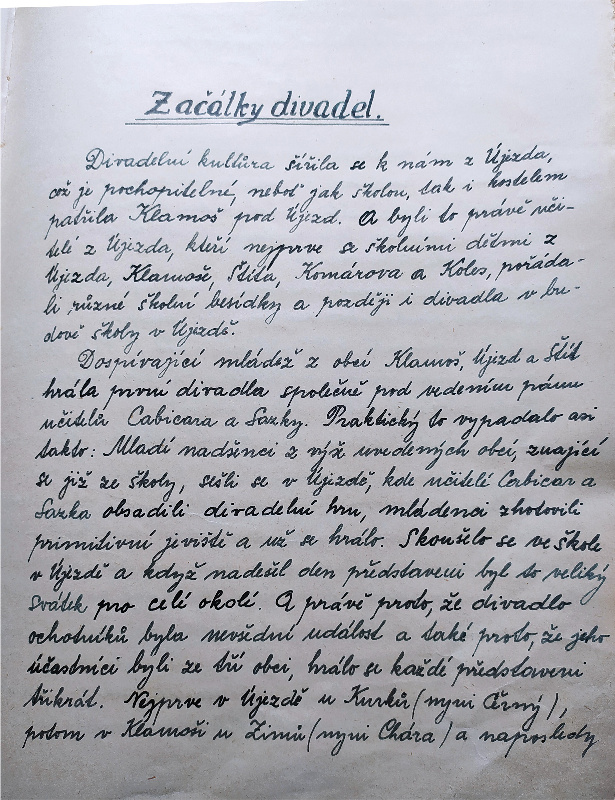 Začálky divadel.
Divadelní kultůra šířila se k nám z Újezda,
což je pochopitelné, neboť jak školou, tak i kostelem
patřila Klamoš pod Újezd. A byli to právě uči-
telé z Újezda, kteří nejprve se školními dětmi z
Újezda, Klamoše, Štíta, Komárova a Koles, pořáda-
li různé školní besídky a později i divadla v bu-
dově školy v Újezdě.
Dospívající mládež z obcí Klamoš, Újezd a Štít
hrála první divadla společně pod vedením pánů
učitelů Cabicara a Sazky. Praktický to vypadalo asi
takto: Mladí nadšenci z výž uvedených obcí, znající
se již ze školy, sešli se v Újezdě, kde učitelé Cabicar a
Sazka obsadili divadelní hru, mládenci zhotovili
primitivní jeviště a už se hrálo. Skoušelo se ve škole
v Újezdě a když nadešel den představeni byl to veliký
svátek pro celé okolí. A právě proto, že divadlo
ochotníků byla nevšední událost a také proto, že jeho
účastníci byli ze tří obcí, hrálo se každé představeni
třikrát. Nejprve v Újezdě u Kurků (nyni Černý),
potom v Klamoši u Zimů (nyni Chára) a naposledy